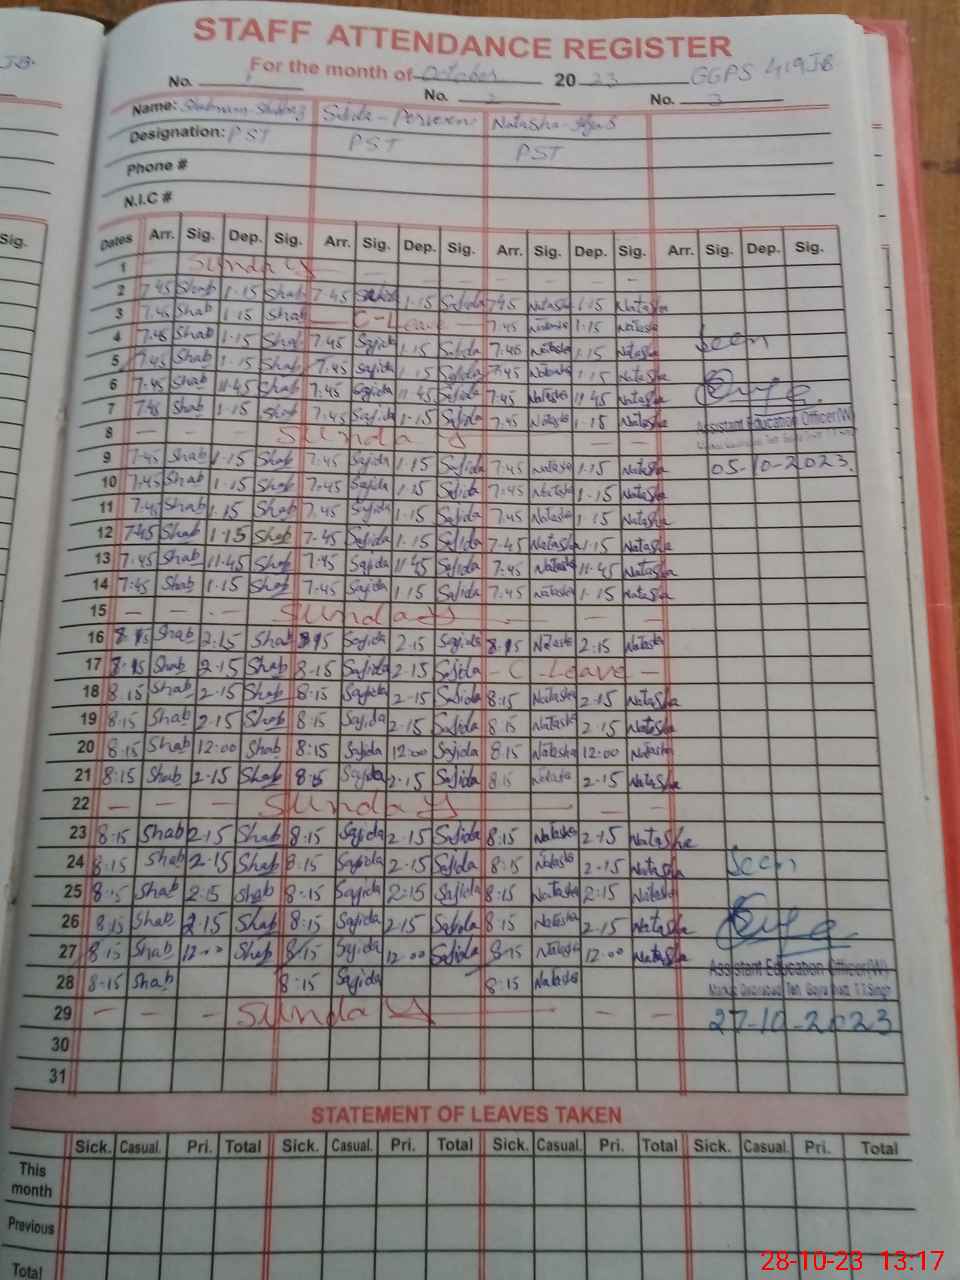 STAFF ATTENDANCE REGISTER
For the month of October 2023 GGPS 419 JB
No. 1 No. 2 No. 3
Name: Shabnam Sajida - Perveen Natasha
Designation: PST PST PST
Phone #
N.I.C #
Sig. Dates Arr. Sig. Dep. Sig. Arr. Sig. Dep. Sig. Arr. Sig. Dep. Sig. Arr. Sig. Dep. Sig.
1 — Sunday — — — — — — —
2 7.45 Shab 1.15 Shab 7.45 Sajida 1.15 Sajida 7.45 Natasha 1.15 Natasha
3 7.45 Shab 1.15 Shab — C-Leave — 7.45 Natasha 1.15 Natasha
4 7.45 Shab 1.15 Shab 7.45 Sajida 1.15 Sajida 7.45 Natasha 1.15 Natasha Seen
5 7.45 Shab 1.15 Shab 7.45 Sajida 1.15 Sajida 7.45 Natasha 1.15 Natasha
6 7.45 Shab 11.45 Shab 7.45 Sajida 11.45 Sajida 7.45 Natasha 11.45 Natasha
7 7.45 Shab 1.15 Shab 7.45 Sajida 1.15 Sajida 7.45 Natasha 1.15 Natasha Assistant Education Officer(W)
8 — — — Sunday — —
9 7.45 Shab 1.15 Shab 7.45 Sajida 1.15 Sajida 7.45 Natasha 1.15 Natasha 05-10-2023.
10 7.45 Shab 1.15 Shab 7.45 Sajida 1.15 Sajida 7.45 Natasha 1.15 Natasha
11 7.45 Shab 1.15 Shab 7.45 Sajida 1.15 Sajida 7.45 Natasha 1.15 Natasha
12 7.45 Shab 1.15 Shab 7.45 Sajida 1.15 Sajida 7.45 Natasha 1.15 Natasha
13 7.45 Shab 11.45 Shab 7.45 Sajida 11.45 Sajida 7.45 Natasha 11.45 Natasha
14 7.45 Shab 1.15 Shab 7.45 Sajida 1.15 Sajida 7.45 Natasha 1.15 Natasha
15 — — — Sunday — — —
16 8.15 Shab 2.15 Shab 8.15 Sajida 2.15 Sajida 8.15 Natasha 2.15 Natasha
17 8.15 Shab 2.15 Shab 8.15 Sajida 2.15 Sajida - C Leave -
18 8.15 Shab 2.15 Shab 8.15 Sajida 2.15 Sajida 8.15 Natasha 2.15 Natasha
19 8.15 Shab 2.15 Shab 8.15 Sajida 2.15 Sajida 8.15 Natasha 2.15 Natasha
20 8.15 Shab 12:00 Shab 8:15 Sajida 12:00 Sajida 8.15 Natasha 12:00 Natasha
21 8:15 Shab 2.15 Shab 8.15 Sajida 2.15 Sajida 8.15 Natasha 2.15 Natasha
22 — — — Sunday — — —
23 8:15 Shab 2.15 Shab 8:15 Sajida 2.15 Sajida 8:15 Natasha 2.15 Natasha
24 8.15 Shab 2.15 Shab 8.15 Sajida 2.15 Sajida 8.15 Natasha 2.15 Natasha Seen
25 8.15 Shab 2.15 Shab 8.15 Sajida 2:15 Sajida 8.15 Natasha 2.15 Natasha
26 8.15 Shab 2.15 Shab 8.15 Sajida 2.15 Sajida 8.15 Natasha 2.15 Natasha
27 8.15 Shab 12.00 Shab 8.15 Sajida 12.00 Sajida 8.15 Natasha 12.00 Natasha
28 8.15 Shab 8.15 Sajida 8.15 Natasha Assistant Education Officer(W)
29 — — — Sunday — — — 27-10-2023
30
31
STATEMENT OF LEAVES TAKEN
Sick. Casual. Pri. Total Sick. Casual. Pri. Total Sick. Casual. Pri. Total Sick. Casual. Pri. Total
This
month
Previous
Total
28-10-23 13:17